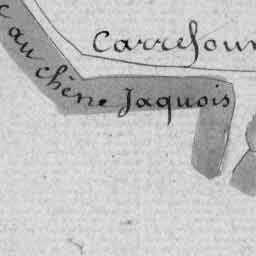 Carrefour
au chêne Jaquois